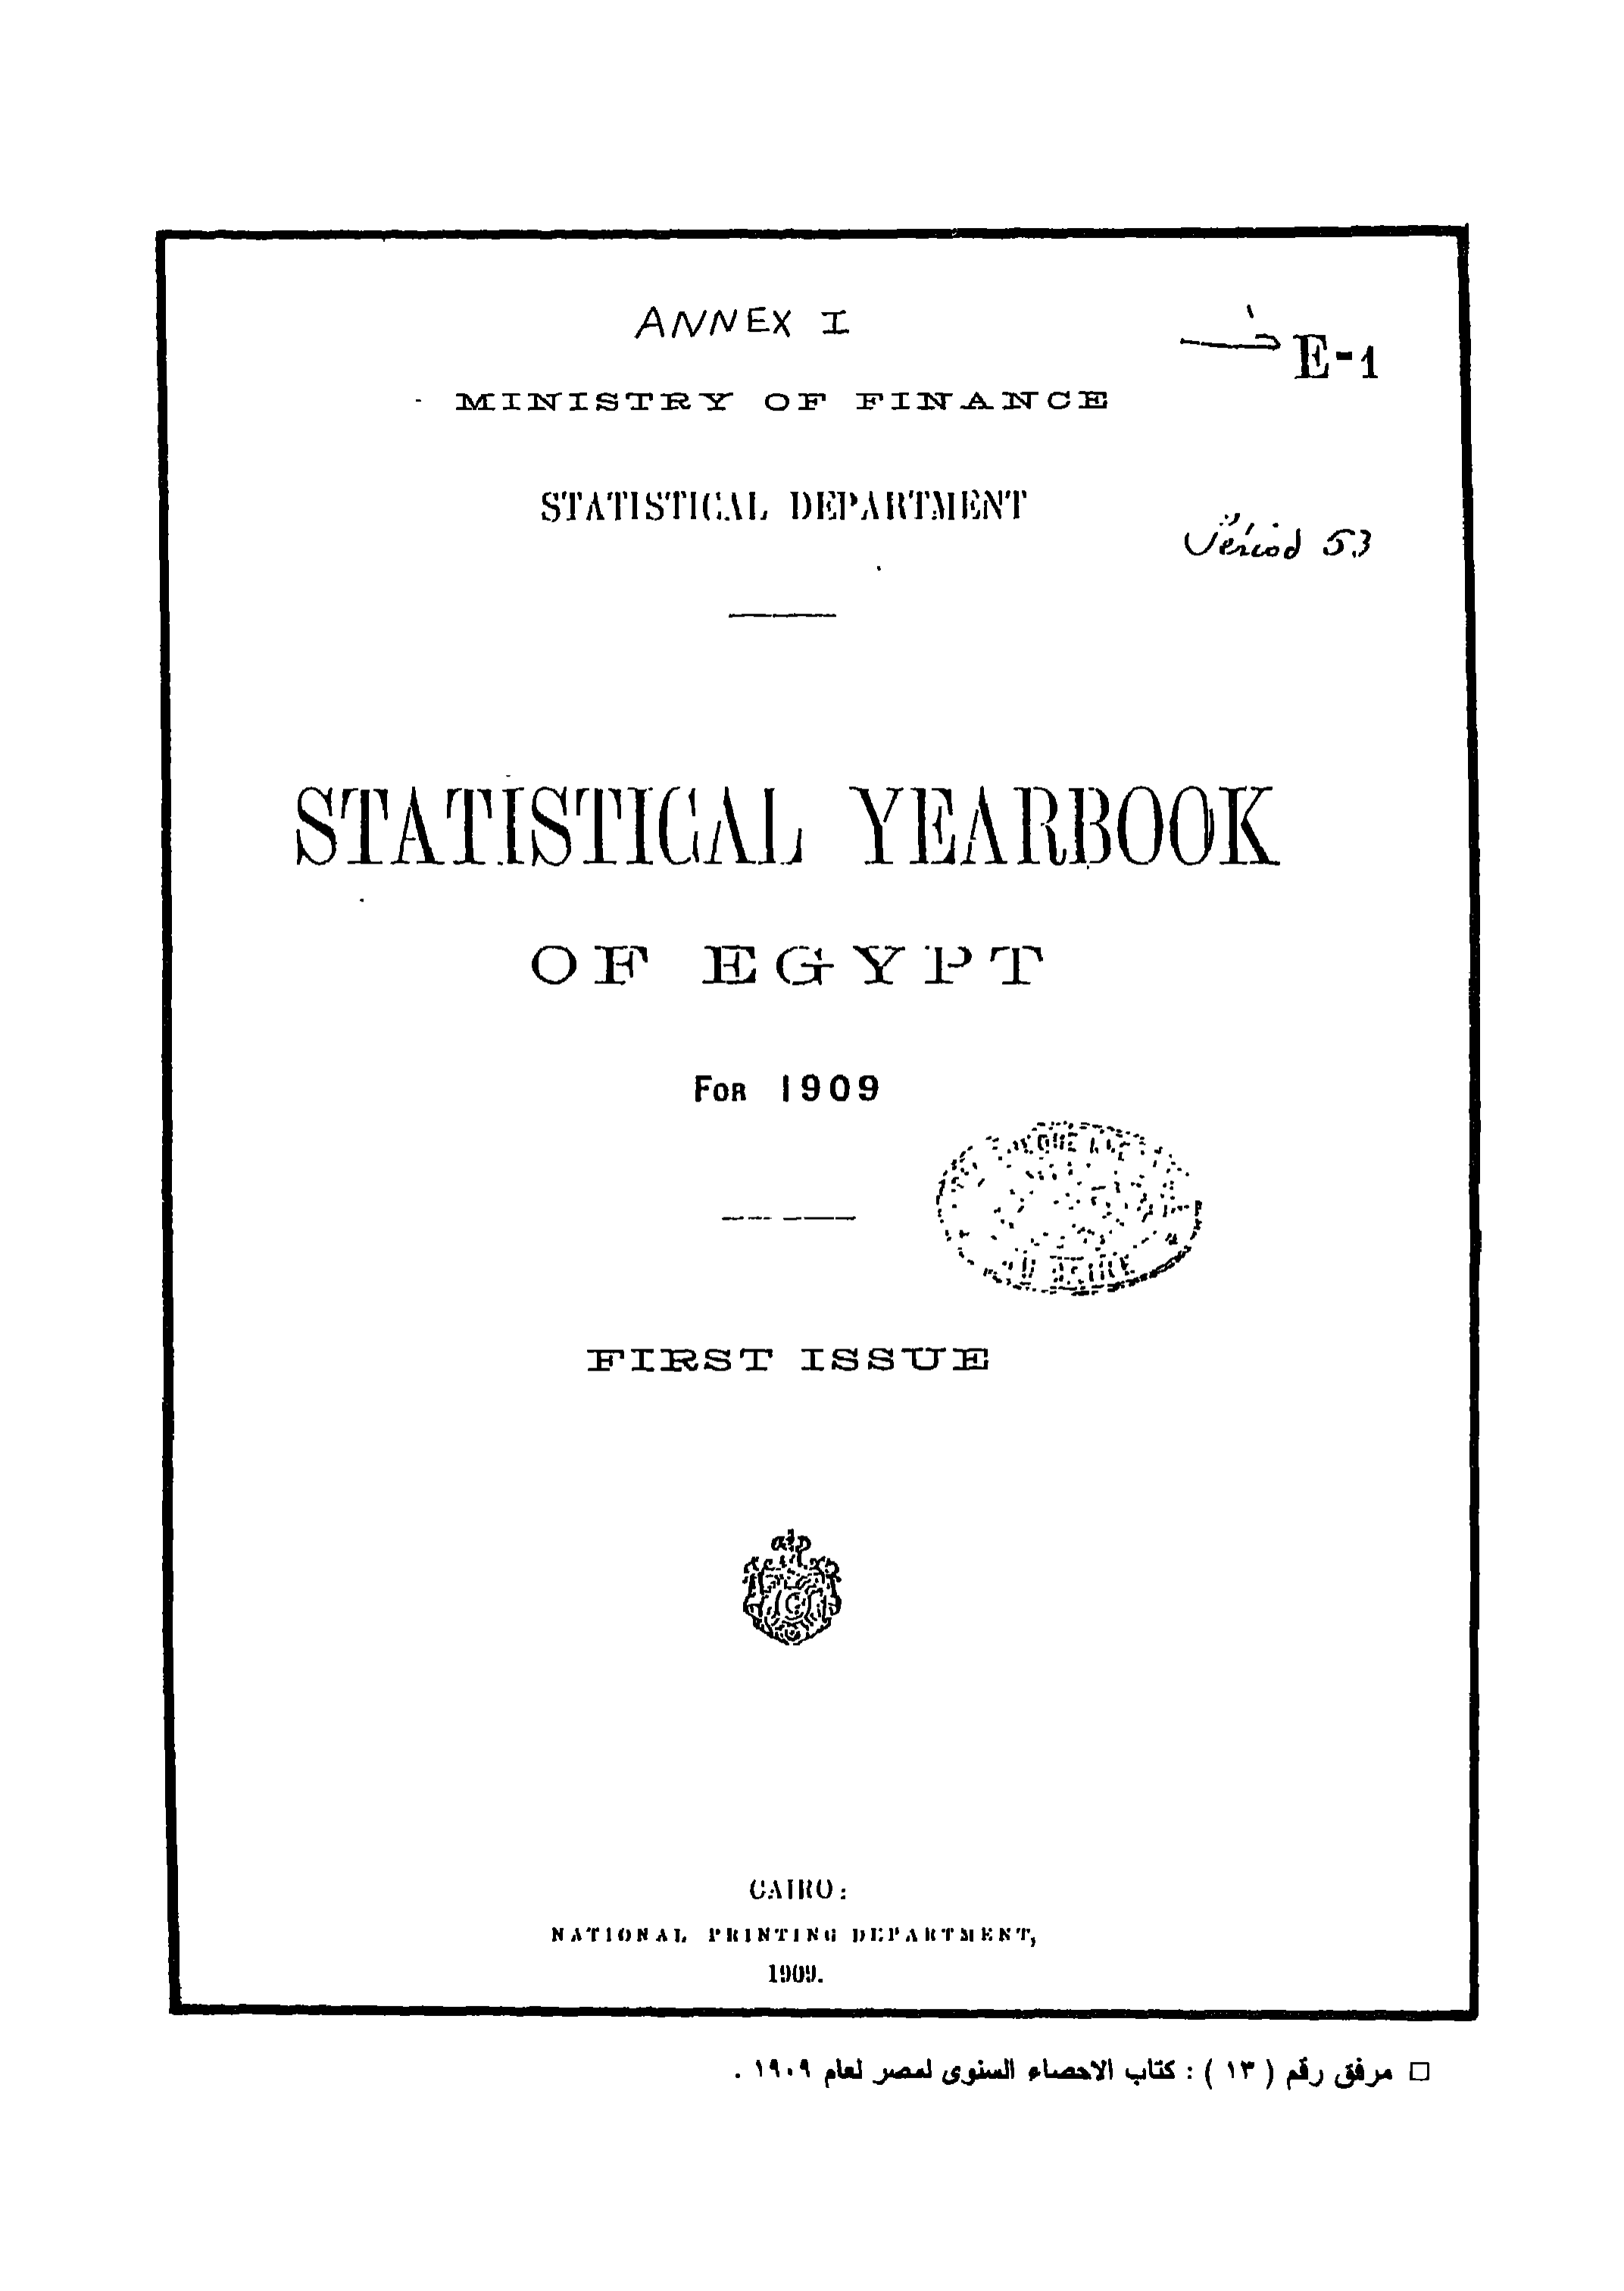 ANNEX I
E-1
MINISTRY OF FINANCE
STATISTICAL DEPARTMENT
Period 53
STATISTICAL YEARBOOK
OF EGYPT
FOR 1909
FIRST ISSUE
CAIRO:
NATIONAL PRINTING DEPARTMENT,
1909.
□ مرفق رقم ( ١٣ ) : كتاب الاحصاء السنوى لمصر لعام ١٩٠٩ .